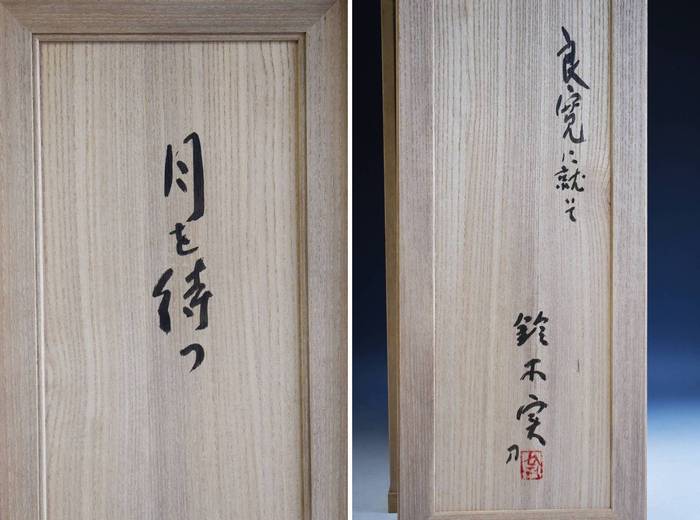 月を待つ
良寛に就いて
鈴木実刀